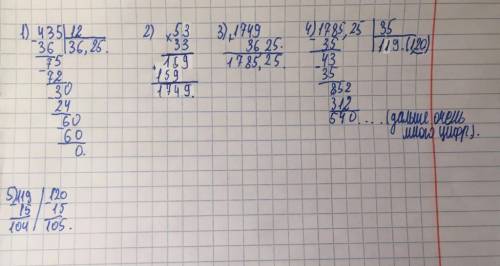 1) 435 | 12
- 36 | 36,25.
75
- 72
30
- 24
60
- 60
0.
2) 53
× 33
159
+ 159
1749.
3) 1749
+ 36 25.
1785,25.
4) 1785,25 | 35
- 35 | 119. (120)
43
- 35
852
312
540.... (дальше очень
много цифр).
5) 119 / 120
- 15 / - 15
104 / 105.